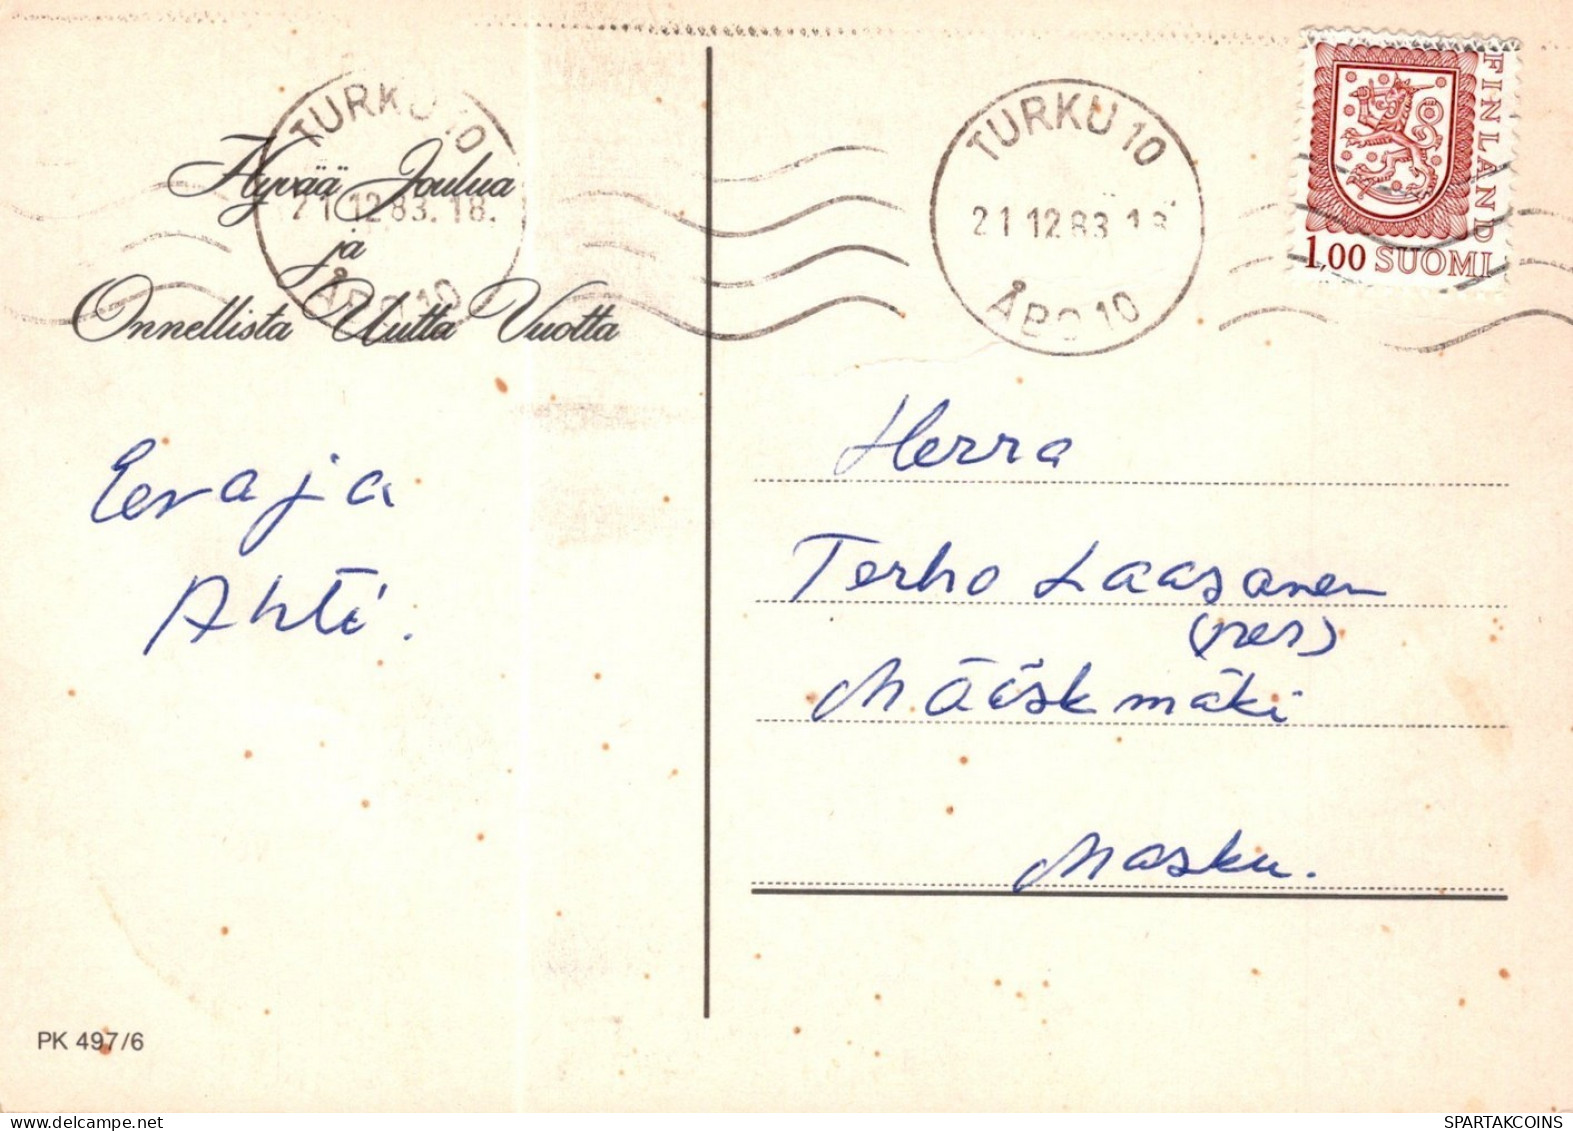 TURKU 10
21.12.83.18.
ÅBO 10
Hyvää Joulua
ja
Onnellista Uutta Vuotta
Eeva ja
Ahti.
PK 497/6
TURKU 10
21.12.83.18
ÅBO 10
FINLAND
1,00 SUOMI
Herra
Terho Laasanen
(per)
Määskmäki
Masku.
SPARTAKCOINS
eBid.net